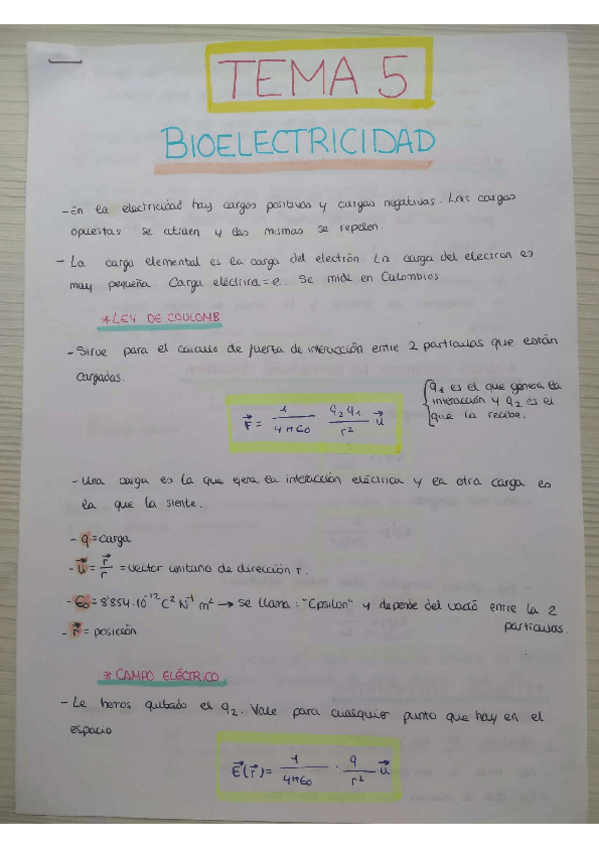 TEMA 5
BIOELECTRICIDAD
- En la electricidad hay cargas positivas y cargas negativas. Las cargas
opuestas se atraen y las mismas se repelen.
- La carga elemental es la carga del electrón. La carga del electron es
muy pequeña. Carga eléctrica = e. Se mide en Culombios
* LEY DE COULOMB
- Sirve para el calculo de fuerza de interacción entre 2 particulas que están
cargadas.
q1 es el que genera la
interacción y q2 es el
que la recibe.
F⃗ = 1/(4πϵ0) q2 q1/r² u⃗
- Una carga es la que ejerce la interacción eléctrica y la otra carga es
la que la siente.
- q = carga
- u⃗ = r⃗/r = vector unitario de dirección r.
- ϵ0 = 8'854·10⁻¹² C² N⁻¹ m² → se llama: "Epsilon" y depende del vacío entre la 2
particulas.
- r⃗ = posición
* CAMPO ELÉCTRICO
- Le hemos quitado el q2. Vale para cualquier punto que hay en el
espacio
E⃗(r⃗) = 1/(4πϵ0) · q/r² u⃗